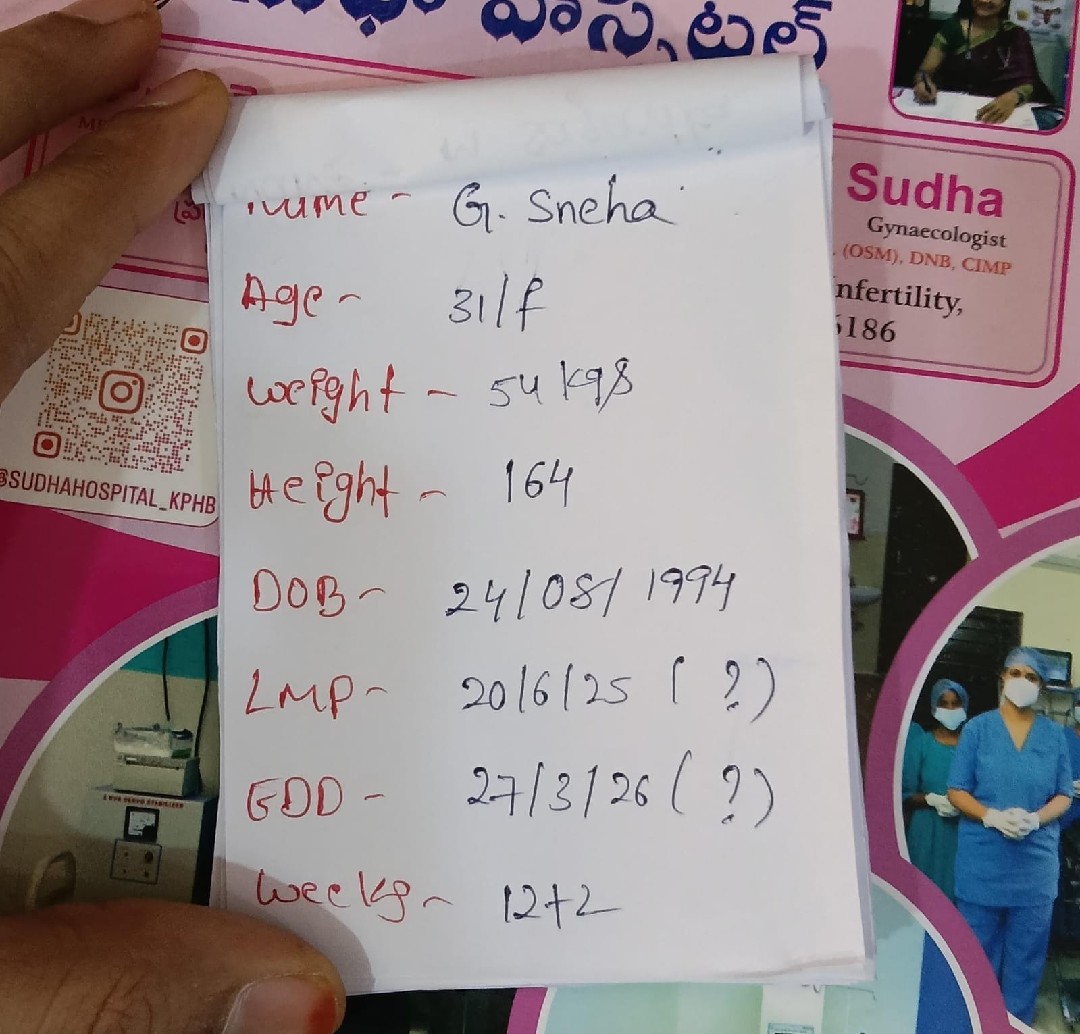 హాస్పిటల్
Name - G. Sneha
Age - 31/f
Weight - 54 kgs
Height - 164
DOB - 24/08/1994
LMP - 20/6/25 (?)
EDD - 27/3/26 (?)
Weeks - 12+2
Sudha
Gynaecologist
(OSM), DNB, CIMP
nfertility,
6186
@SUDHAHOSPITAL_KPHB